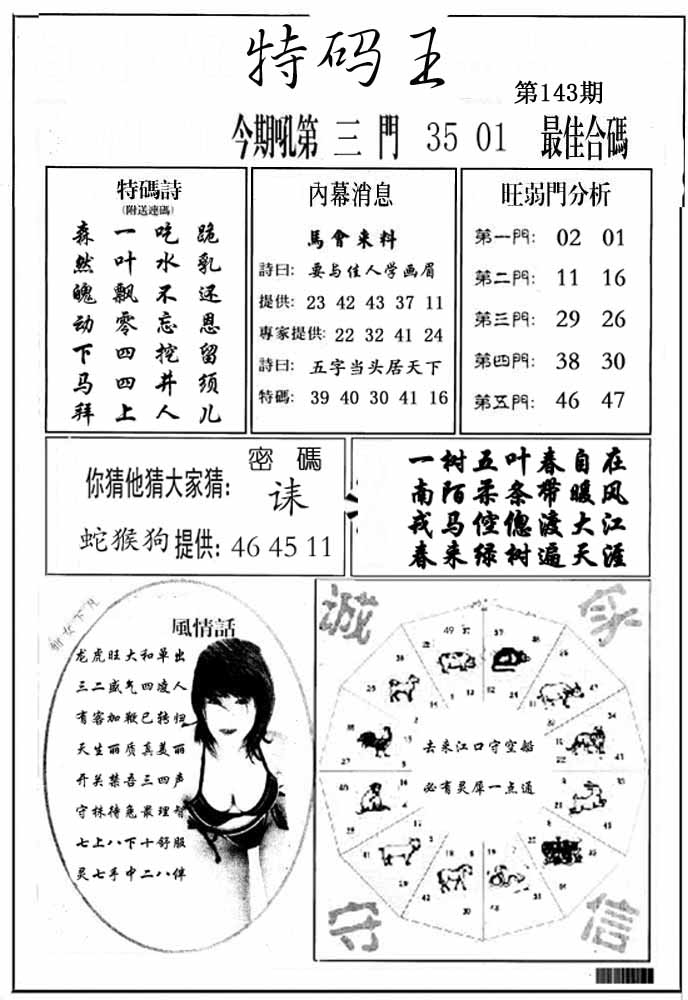 特码王
第143期
今期吼第 三 門 35 01 最佳合碼
特碼詩
(附送連碼)
森 一 吃 跪
然 叶 水 乳
魄 飘 不 还
动 零 忘 恩
下 四 挖 留
马 四 井 须
拜 上 人 儿
內幕消息
馬會來料
詩曰: 要与佳人学画眉
提供: 23 42 43 37 11
專家提供: 22 32 41 24
詩曰: 五字当头居天下
特碼: 39 40 30 41 16
旺弱門分析
第一門: 02 01
第二門: 11 16
第三門: 29 26
第四門: 38 30
第五門: 46 47
密 碼
你猜他猜大家猜: 诔
蛇猴狗 提供: 46 45 11
一树五叶春自在
南陌柔条带暖风
戎马倥偬渡大江
春来绿树遍天涯
風情話
龙虎旺大和单出
三二盛气四凌人
有客加鞭已转归
天生丽质真美丽
开关禁吾三四声
守株待兔最理智
七上八下十舒服
灵七手中二八俾
誠
守
信
去来江口守空船
必有灵犀一点通